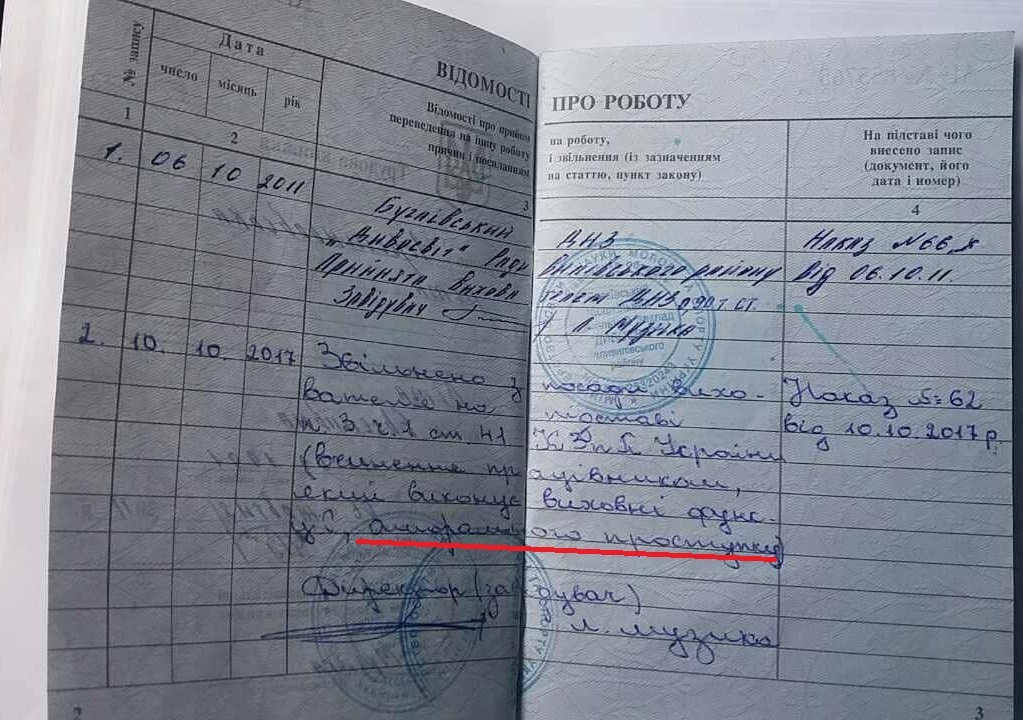 ВІДОМОСТІ ПРО РОБОТУ
№ запису
Дата
число
місяць
рік
Відомості про прийом на роботу,
переведення на іншу роботу і звільнення (із зазначенням
причин і посиланням на статтю, пункт закону)
На підставі чого
внесено запис
(документ, його
дата і номер)
1 2 3 4
1. 06 10 2011
Бугаївський ДНЗ Наказ №66
"Дивосвіт" району від 06.10.11.
Прийнята
Завідувач Л. Музика
2. 10. 10. 2017 Звільнено з посади вихо- Наказ №62
вателя на підставі від 10.10.2017 р.
п. 3 ч. 1 ст. 41 КЗпП України
(вчинення працівником,
який виконує виховні функ-
ції, аморального проступку)
Директор (завідувач)
Л. Музика
2
3